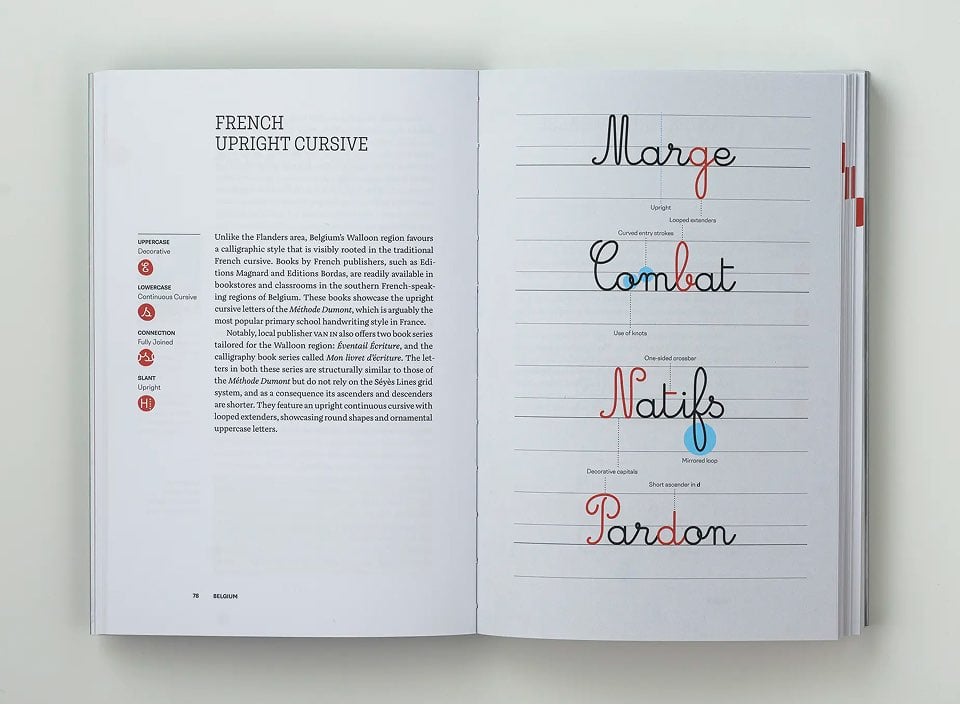 FRENCH
UPRIGHT CURSIVE
UPPERCASE
Decorative
LOWERCASE
Continuous Cursive
CONNECTION
Fully Joined
SLANT
Upright
Unlike the Flanders area, Belgium's Walloon region favours
a calligraphic style that is visibly rooted in the traditional
French cursive. Books by French publishers, such as Edi-
tions Magnard and Editions Bordas, are readily available in
bookstores and classrooms in the southern French-speak-
ing regions of Belgium. These books showcase the upright
cursive letters of the Méthode Dumont, which is arguably the
most popular primary school handwriting style in France.
Notably, local publisher VAN IN also offers two book series
tailored for the Walloon region: Éventail Écriture, and the
calligraphy book series called Mon livret d'écriture. The let-
ters in both these series are structurally similar to those of
the Méthode Dumont but do not rely on the Séyès Lines grid
system, and as a consequence its ascenders and descenders
are shorter. They feature an upright continuous cursive with
looped extenders, showcasing round shapes and ornamental
uppercase letters.
78 BELGIUM
Marge
Upright
Looped extenders
Curved entry strokes
Combat
Use of knots
One-sided crossbar
Natifs
Mirrored loop
Decorative capitals
Short ascender in d
Pardon